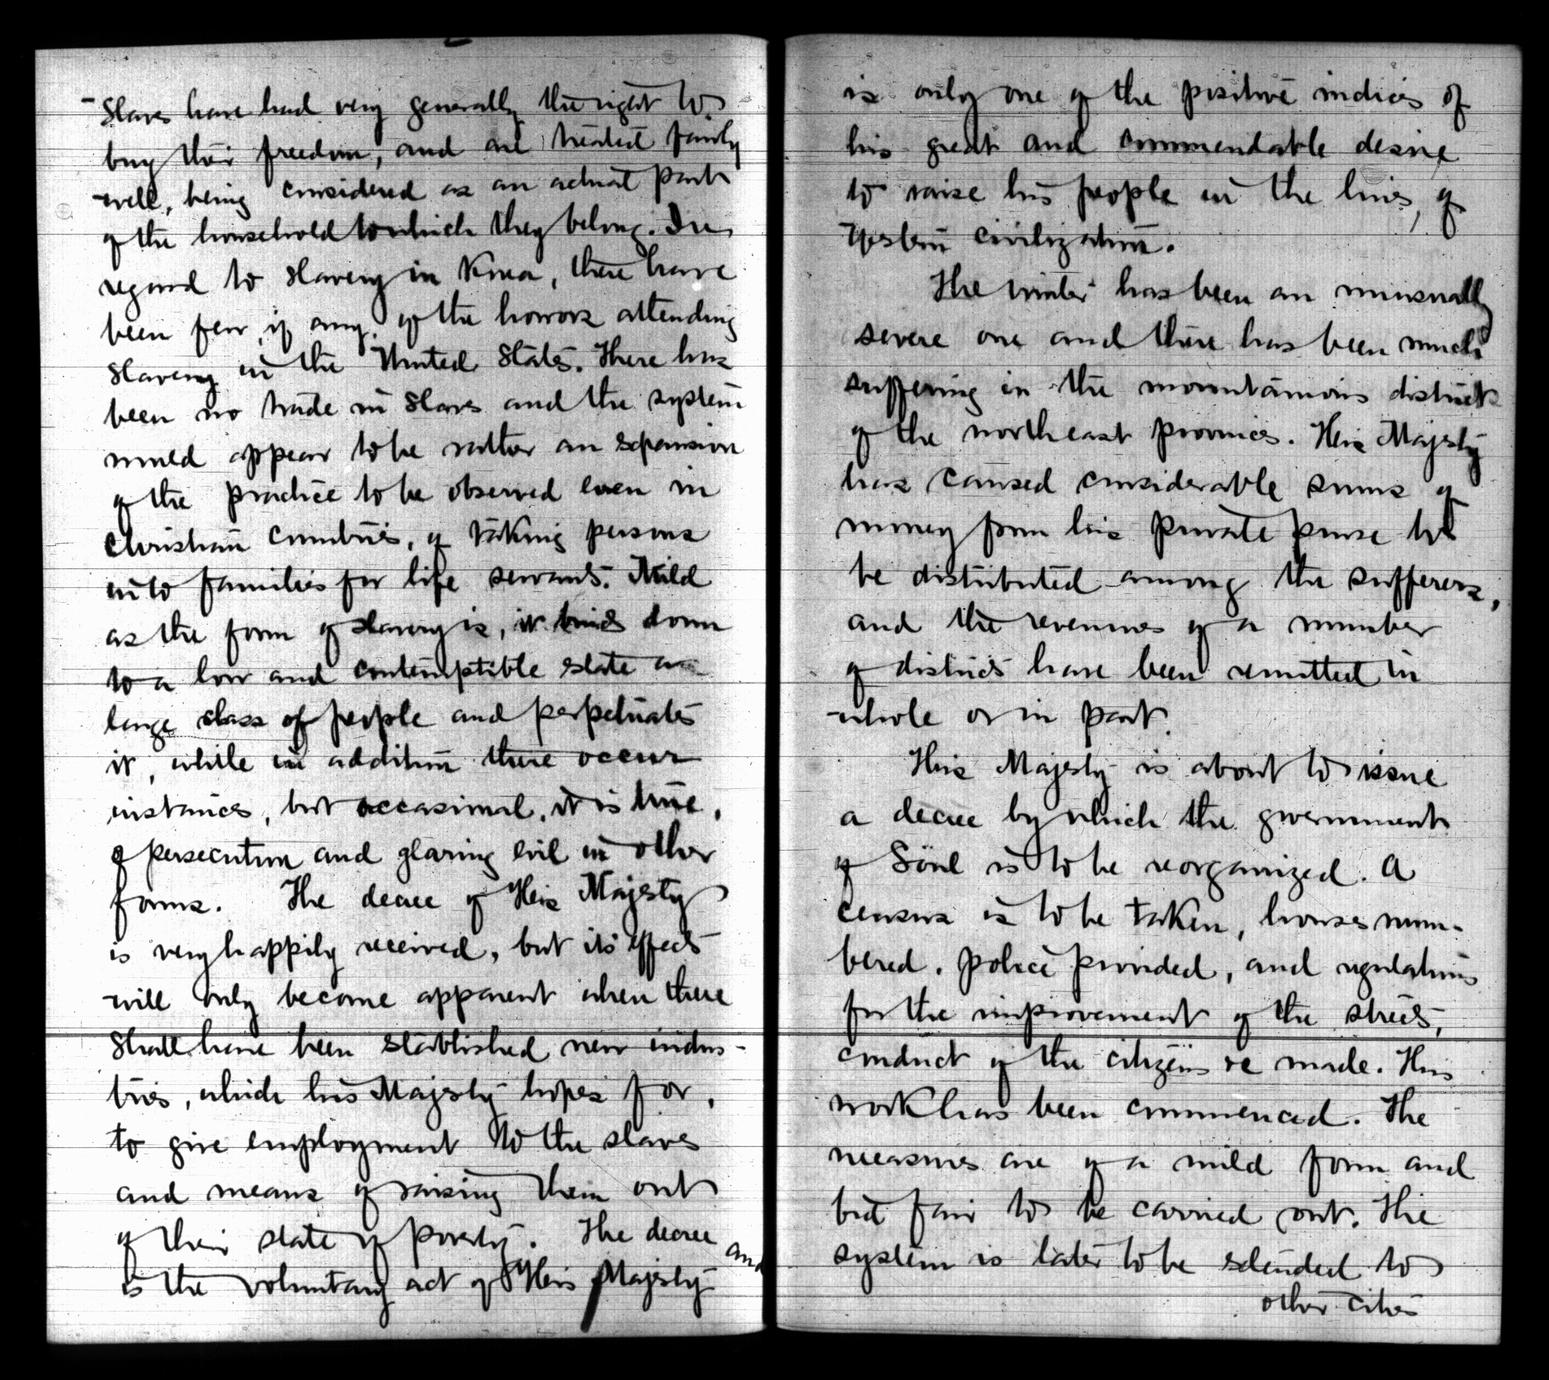 Slaves have had very generally the right to
buy their freedom, and are treated fairly
well, being considered as an actual part
of the household to which they belong. In
regard to slavery in Korea, there have
been few, if any, of the horrors attending
slavery in the United States. There has
been no trade in slaves and the system
would appear to be rather an expansion
of the practice to be observed even in
Christian countries, of taking persons
into families for life servants. Mild
as the form of slavery is, it binds down
to a low and contemptible state a
large class of people and perpetuates
it, while in addition there occur
instances, but occasional, it is true,
of persecution and glaring evil in other
forms. The decree of His Majesty
is very happily received, but its effects
will only become apparent when there
shall have been established new indus-
tries, which his Majesty hopes for,
to give employment to the slaves
and means of raising them out
of their state of poverty. The decree
is the voluntary act of His Majesty and
is only one of the positive indices of
his great and commendable desire
to raise his people in the lines, of
Western civilization.
The winter has been an unusually
severe one and there has been much
suffering in the mountainous districts
of the northeast provinces. His Majesty
has caused considerable sums of
money from his private purse to
be distributed among the sufferers,
and the revenues of a number
of districts have been remitted in
whole or in part.
His Majesty is about to issue
a decree by which the government
of Söul is to be reorganized. A
census is to be taken, houses num-
bered, police provided, and regulations
for the improvement of the streets,
conduct of the citizens re made. This
work has been commenced. The
measures are of a mild form and
bid fair to be carried out. The
system is later to be extended to
other cities